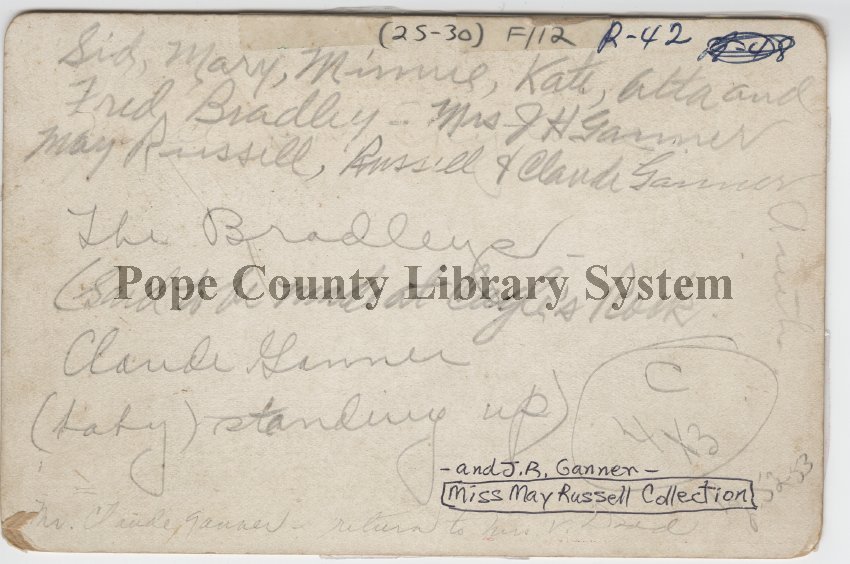 (25-30) F/12 R-42
Sid, Mary, Minnie, Kate, Atta and
Fred Bradley - Mrs J H Ganner
May Russill, Russill & Claude Ganner
The Bradleys -
(Said to be made at Eagles Rock
Pope County Library System
Claude Ganner
(baby) standing up)
C
4 x 3
- and J.R. Ganner -
Miss May Russell Collection
52-53
Mr. Claude Ganner - return to Mrs